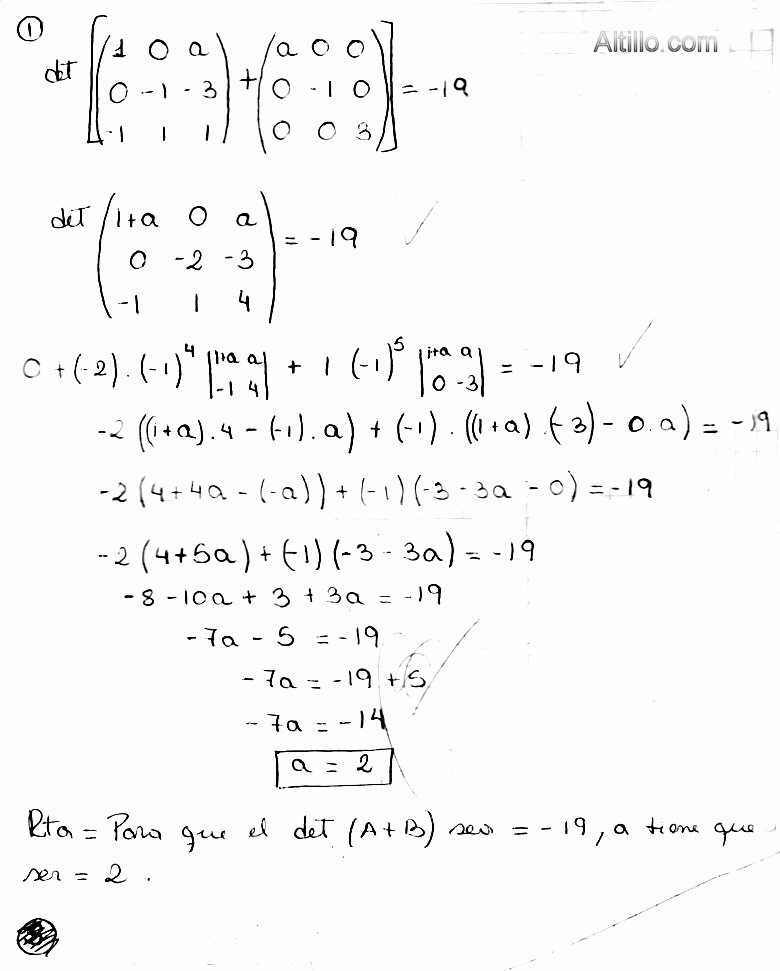 ①
Altillo.com
det [(1 0 a) + (a 0 0)] = -19
(0 -1 -3) (0 -1 0)
(-1 1 1) (0 0 3)
det (1+a 0 a) = -19
(0 -2 -3)
(-1 1 4)
0 + (-2) . (-1)^4 |1+a a| + 1 (-1)^5 |1+a a| = -19
|-1 4| |0 -3|
-2 ((1+a).4 - (-1).a) + (-1) . ((1+a).(-3) - 0.a) = -19
-2 (4+4a - (-a)) + (-1) (-3 - 3a - 0) = -19
-2 (4+5a) + (-1) (-3 - 3a) = -19
-8 - 10a + 3 + 3a = -19
-7a - 5 = -19
-7a = -19 + 5
-7a = -14
a = 2
Rta = Para que el det (A+B) sea = -19, a tiene que
ser = 2 .